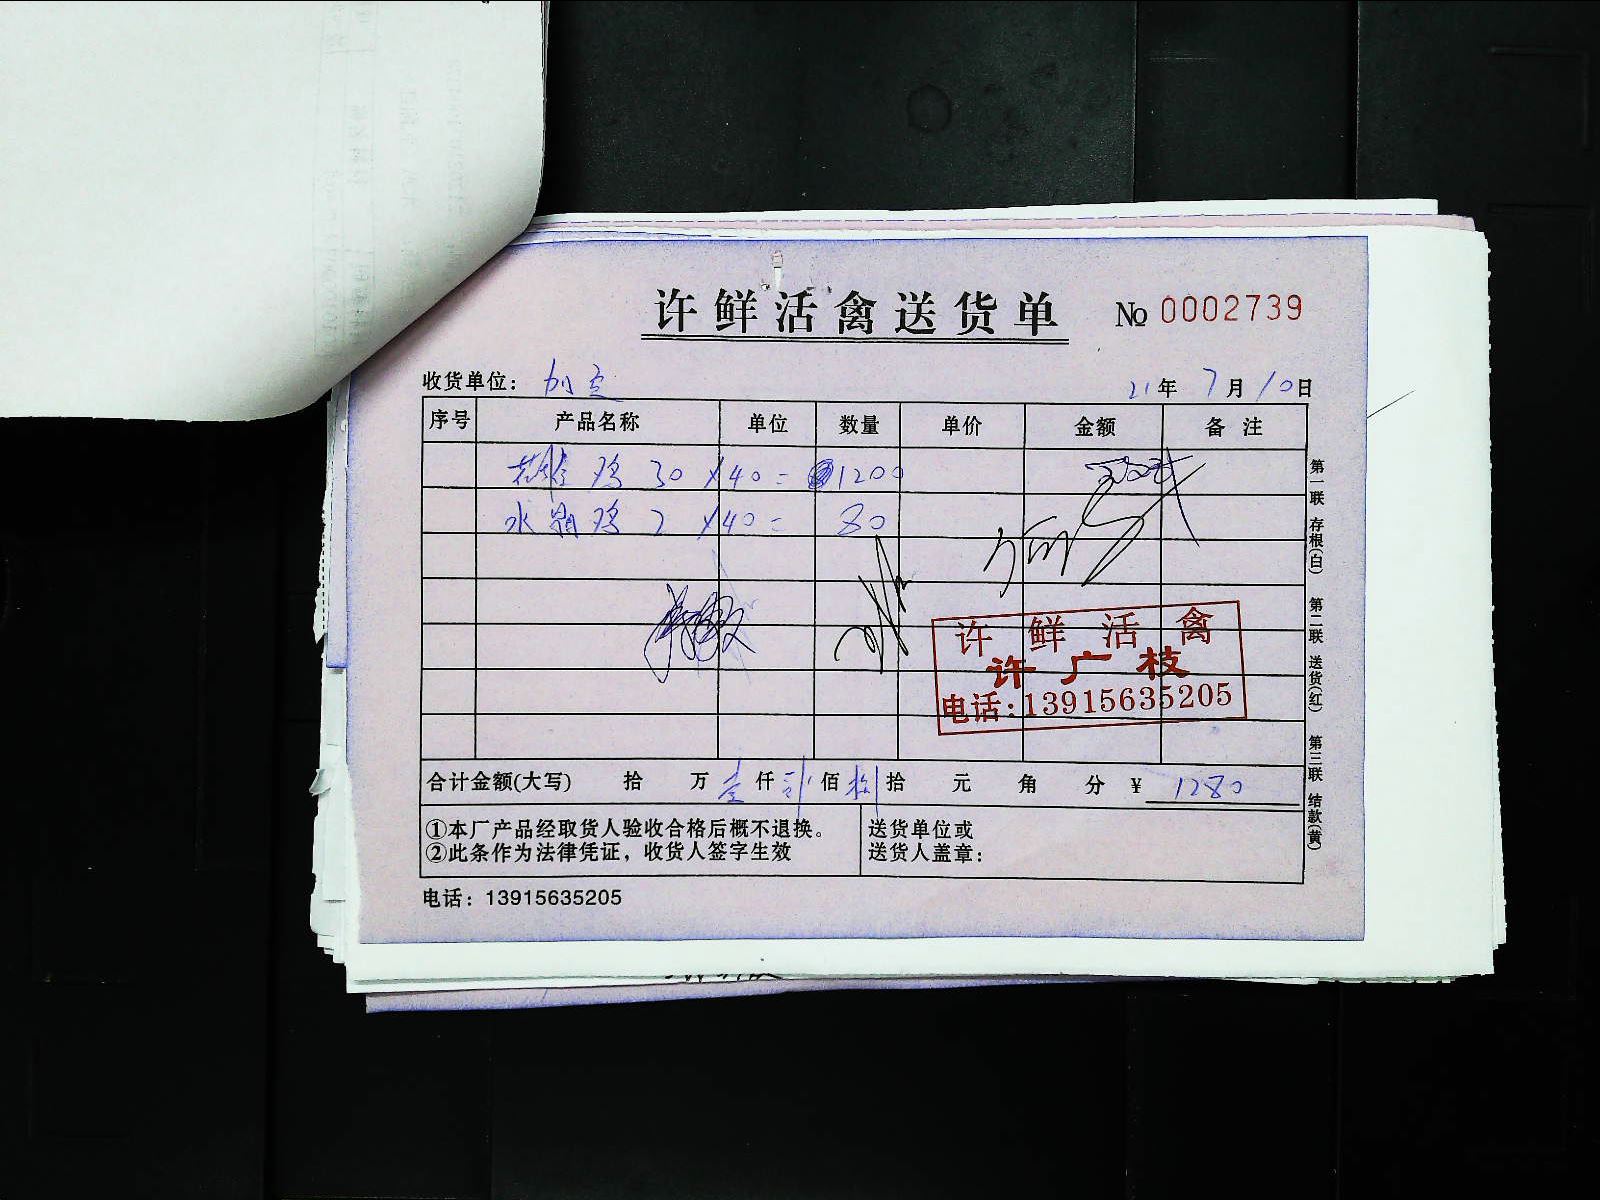 许鲜活禽送货单 No 0002739
收货单位： 21年 7月 10日
序号 产品名称 单位 数量 单价 金额 备注
鸡 30 × 40 = 1200
水 鸡 2 × 40 = 80
许鲜活禽
许广枝
电话：13915635205
合计金额(大写) 拾 万 壹 仟 贰 佰 捌 拾 元 角 分 ¥ 1280
①本厂产品经取货人验收合格后概不退换。
②此条作为法律凭证，收货人签字生效
送货单位或
送货人盖章：
电话：13915635205
第一联 存根(白) 第二联 送货(红) 第三联 结款(黄)